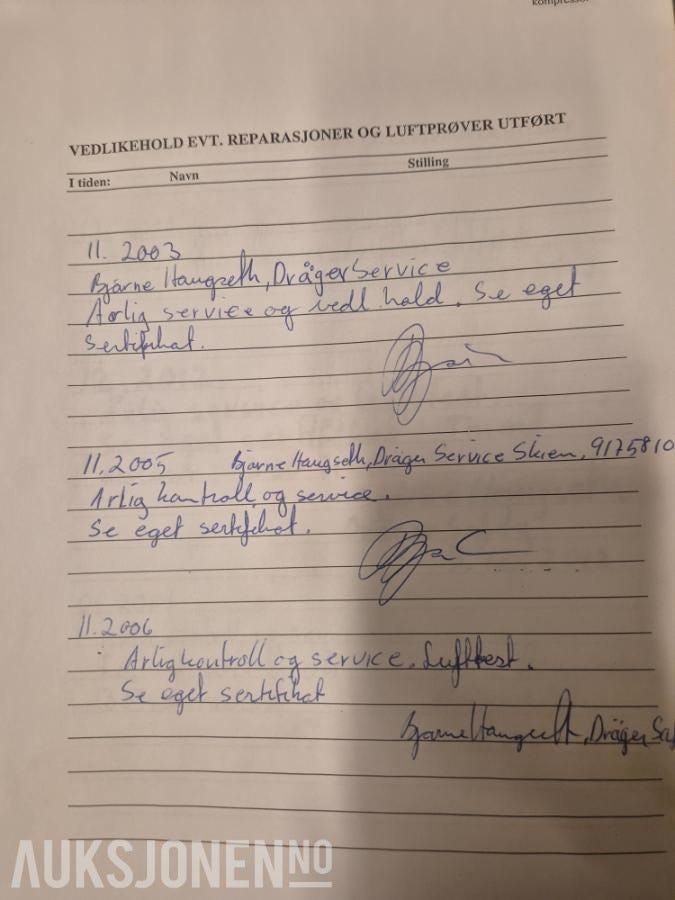 kompressor
VEDLIKEHOLD EVT. REPARASJONER OG LUFTPRØVER UTFØRT
I tiden: Navn Stilling
11. 2003
Bjarne Haugseth, Dräger Service
Årlig service og vedl.hold. Se eget
sertifikat.
11.2005 Bjarne Haugseth, Dräger Service Skien, 9175810
Årlig kontroll og service.
Se eget sertifikat.
11.2006
Årlig kontroll og service. Lufttest.
Se eget sertifikat
Bjarne Haugseth, Dräger Sa
AUKSJONEN NO